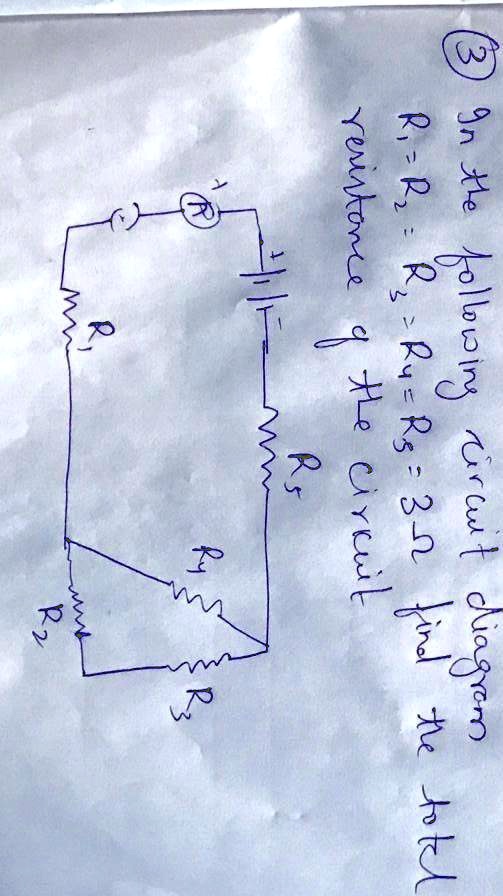 ③ In the following circuit diagram
R₁ = R₂ = R₃ = R₄ = R₅ = 3Ω find the total
resistance of the circuit
+ -
R₅
+
A
R₄
R₃
R₁
R₂